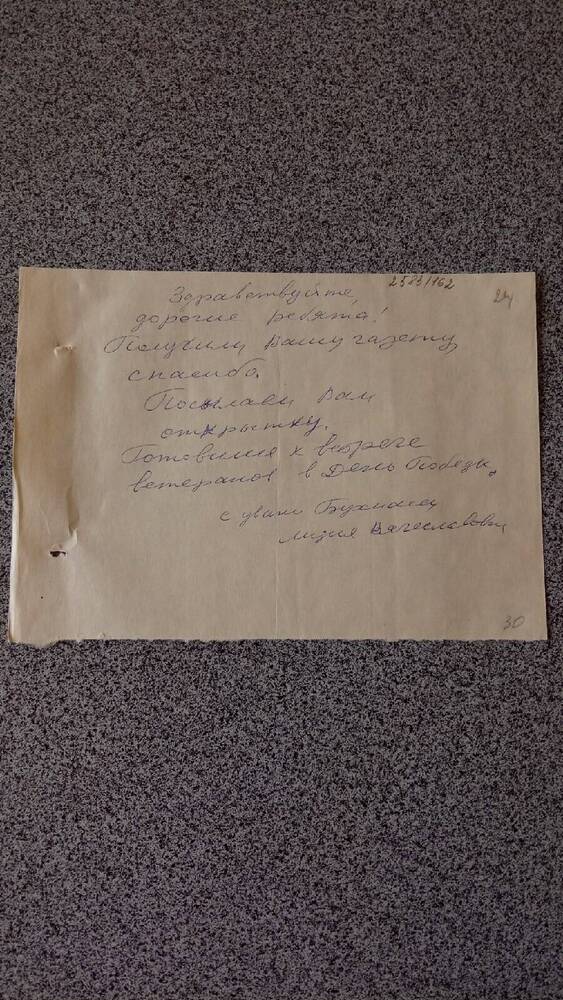 2583/162
24
Здравствуйте,
дорогие ребята!
Получили Вашу газету
спасибо.
Посылаем Вам
открытку.
Готовимся к встрече
ветеранов в День Победы.
с уваж
Лидия Вячеславовн
30